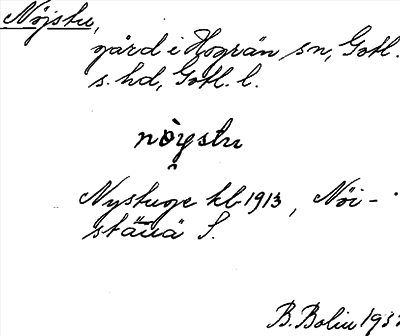 Nöjstu,
gård i Hogrän sn, Gotl.
s. hd, Gotl. l.
nöystu
Nystuge kb 1913, Nöi-
stäuä S.
B. Bolin 193